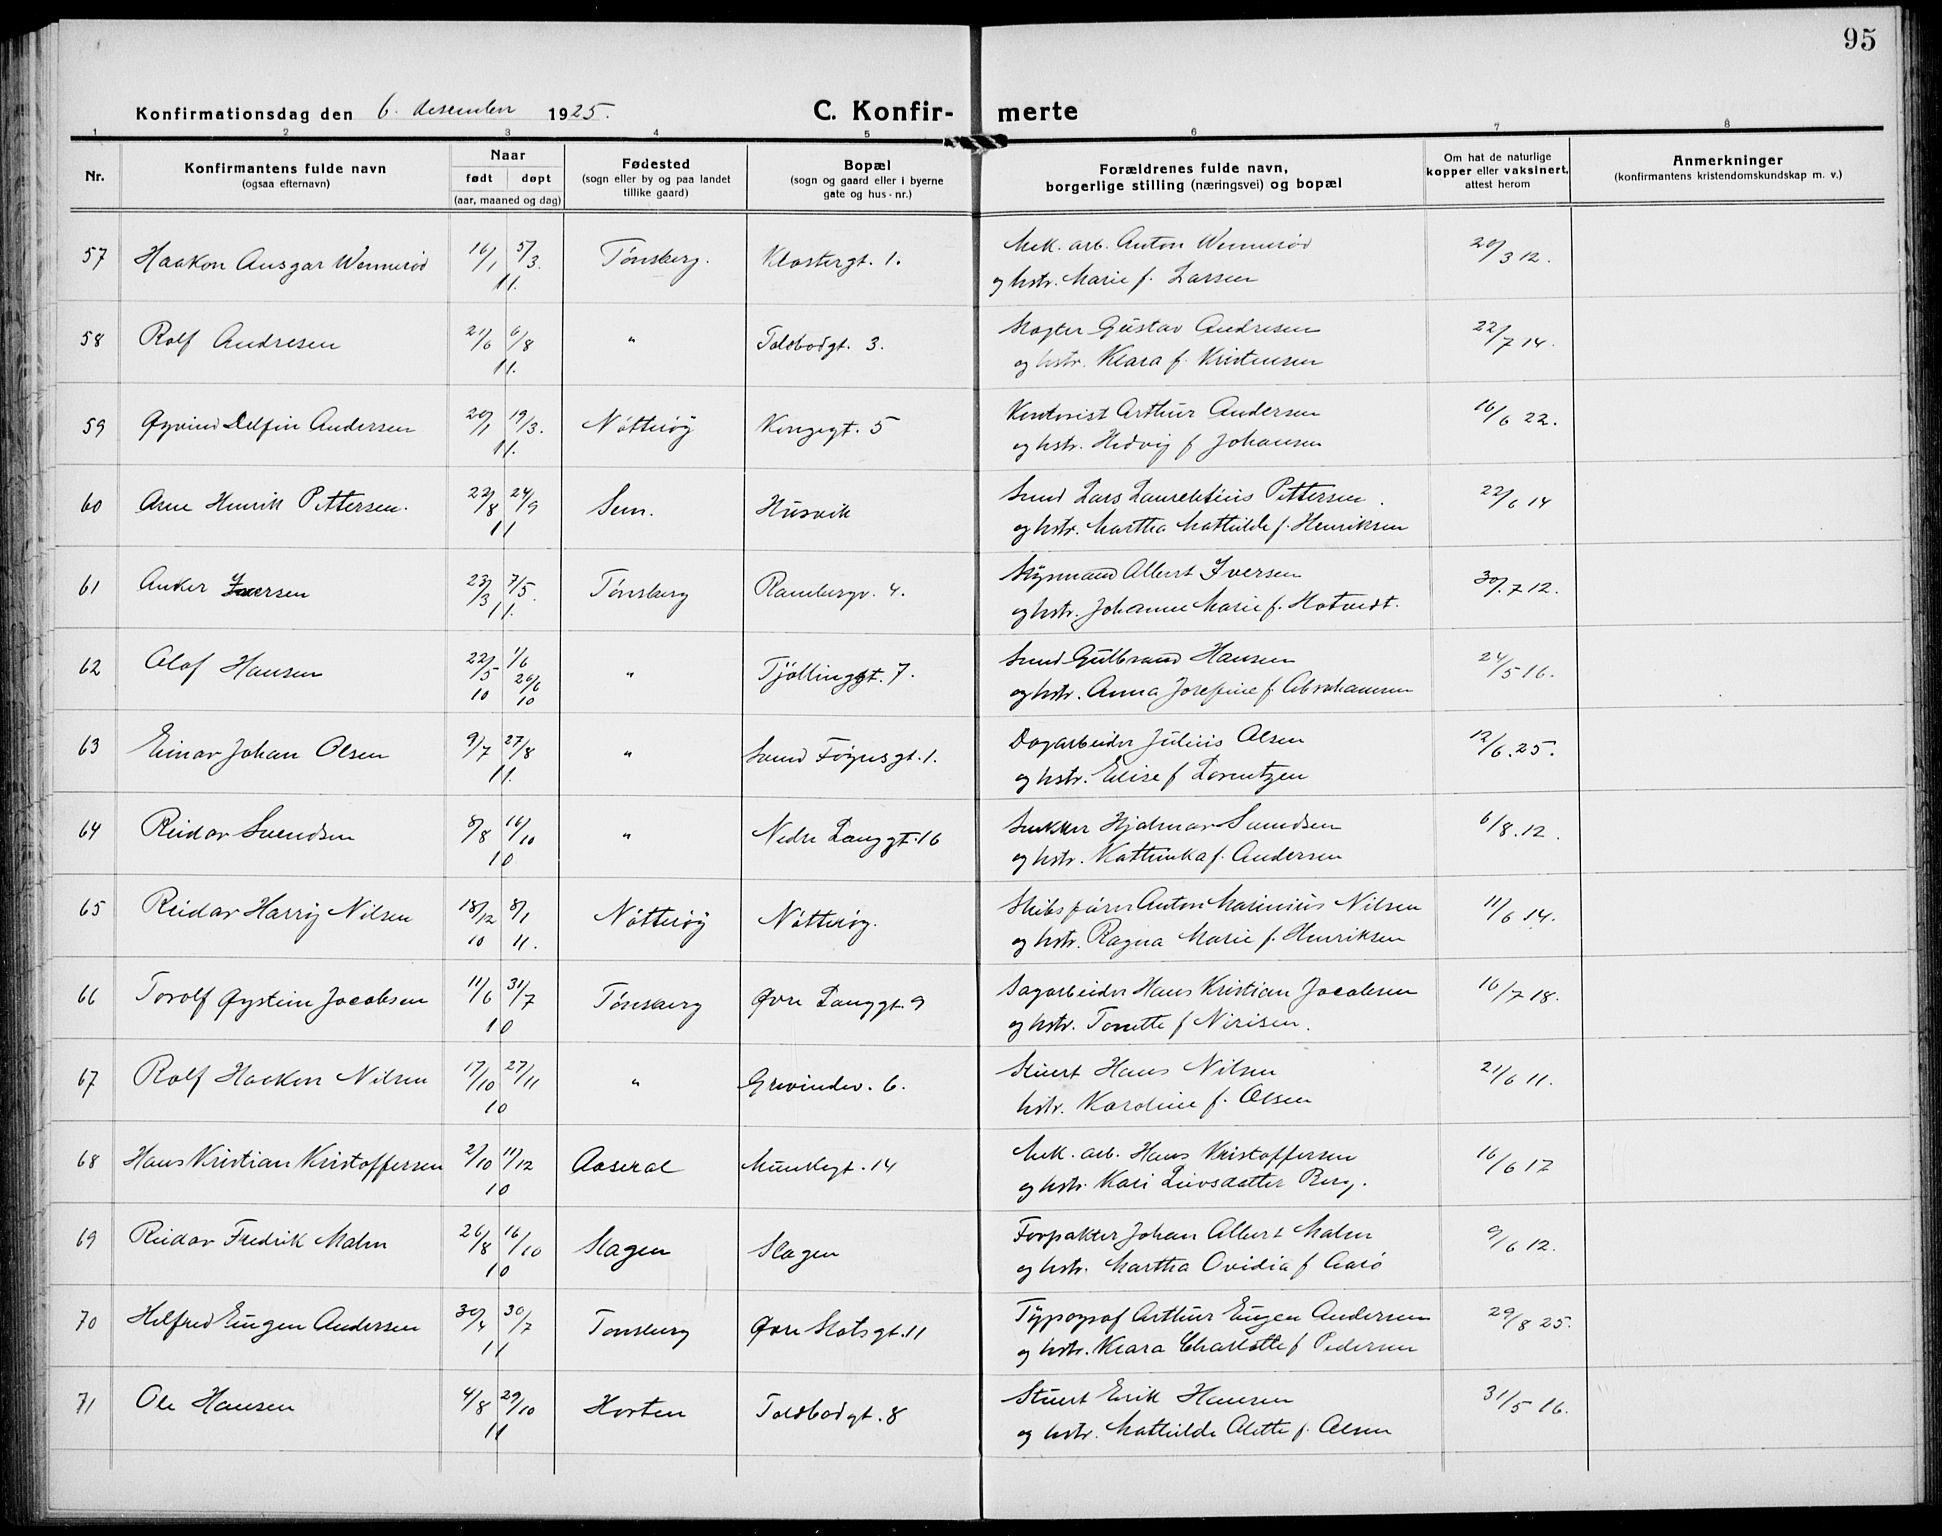 95
Konfirmationsdag den 6. desember 1925.
C. Konfir- merte
1 2 3 4 5 6 7 8
Nr. | Konfirmantens fulde navn (ogsaa efternavn) | Naar født døpt (aar, maaned og dag) | Fødested (sogn eller by og paa landet tillike gaard) | Bopæl (sogn og gaard eller i byerne gate og hus-nr.) | Forældrenes fulde navn, borgerlige stilling (næringsvei) og bopæl | Om hat de naturlige kopper eller vaksinert, attest herom | Anmerkninger (konfirmantens kristendomskundskap m. v.)
57 Haakon Ansgar Wennerød 16/1 5/3. Tønsberg. Klostergt. 1. Mek. arb. Anton Wennerød 20/3 12.
11. og hstr. Marie f. Larsen
58 Rolf Andresen 21/6 6/8 " Toldbodgt. 3. Slagter Gustav Andresen 22/7 14.
11. og hstr. Klara f. Kristensen
59 Øyvind Delfin Andersen 20/1 19/3. Nøtterøy Kongegt. 5 Kontorist Arthur Andersen 16/6 22.
11. og hstr. Hedvig f. Johansen
60 Arne Henrik Pettersen. 22/8 24/9 Sem. Husvik Smed Lars Laurentius Pettersen. 22/6 14
11 og hstr. Martha Mathilde f. Henriksen
61 Anker Iversen 23/3 7/5. Tønsberg Rambergv. 4. Styrmand Albert Iversen 30/7 12.
11. og hstr. Johanne Marie f. Hotvedt.
62 Olaf Hansen 22/5 1/6 " Tjøllinggt. 7. Smed Gulbrand Hansen 24/5 16.
10 26/6 10 og hstr. Anna Josefine f. Abrahamsen
63 Einar Johan Olsen 9/7 27/8 " Svend Føynsgt. 1. Dagarbeider Julius Olsen 12/6. 25.
11. og hstr. Elise f. Lorentzen
64 Reidar Svendsen 8/8 16/10 " Nedre Langgt. 16 Snekker Hjalmar Svendsen 6/8. 12.
10 og hstr. Kathinka f. Andersen
65 Reidar Harry Nilsen 18/12 8/1 Nøtterøy Nøtterøy. Skibsfører Anton Marinius Nilsen 11/6 14.
10 11. og hstr. Ragna Marie f. Henriksen
66 Torolf Øystein Jacobsen 11/6 31/7 Tønsberg Øvre Langgt. 9 Sagarbeider Hans Kristian Jacobsen 16/7 18.
10 og hstr. Tonette f. Nirisen.
67 Rolf Haakon Nilsen 17/10 27/11 " Grevindev. 6. Stuert Hans Nilsen 21/6 11.
10 hstr. Karoline f. Olsen
68 Hans Kristian Kristoffersen 2/10 11/12 Aaseral Munkegt. 14 Mek. arb. Hans Kristoffersen 16/6 17
10 og hstr. Kari Leivsdatter Berg.
69 Reidar Fredrik Malm 26/8 16/10 Slagen Slagen Forpakter Johan Albert Malm 9/6 12.
10 og hstr. Martha Ovidia f. Aarø
70 Hilfred Eugen Andersen 30/4 30/7 Tønsberg Øvre Slotsgt. 11 Typograf Arthur Eugen Andersen 29/8 25.
11 og hstr. Klara Charlotte f. Pedersen
71 Ole Hansen 4/8 29/10 Horten Toldbodgt. 8 Stuert Erik Hansen 31/5 16.
11 og hstr. Mathilde Alette f. Olsen